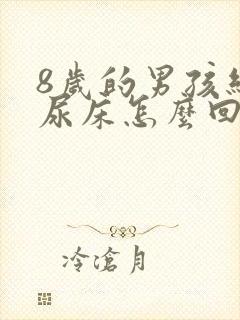 8歲的男孩經
尿床怎麼回
冷滄月